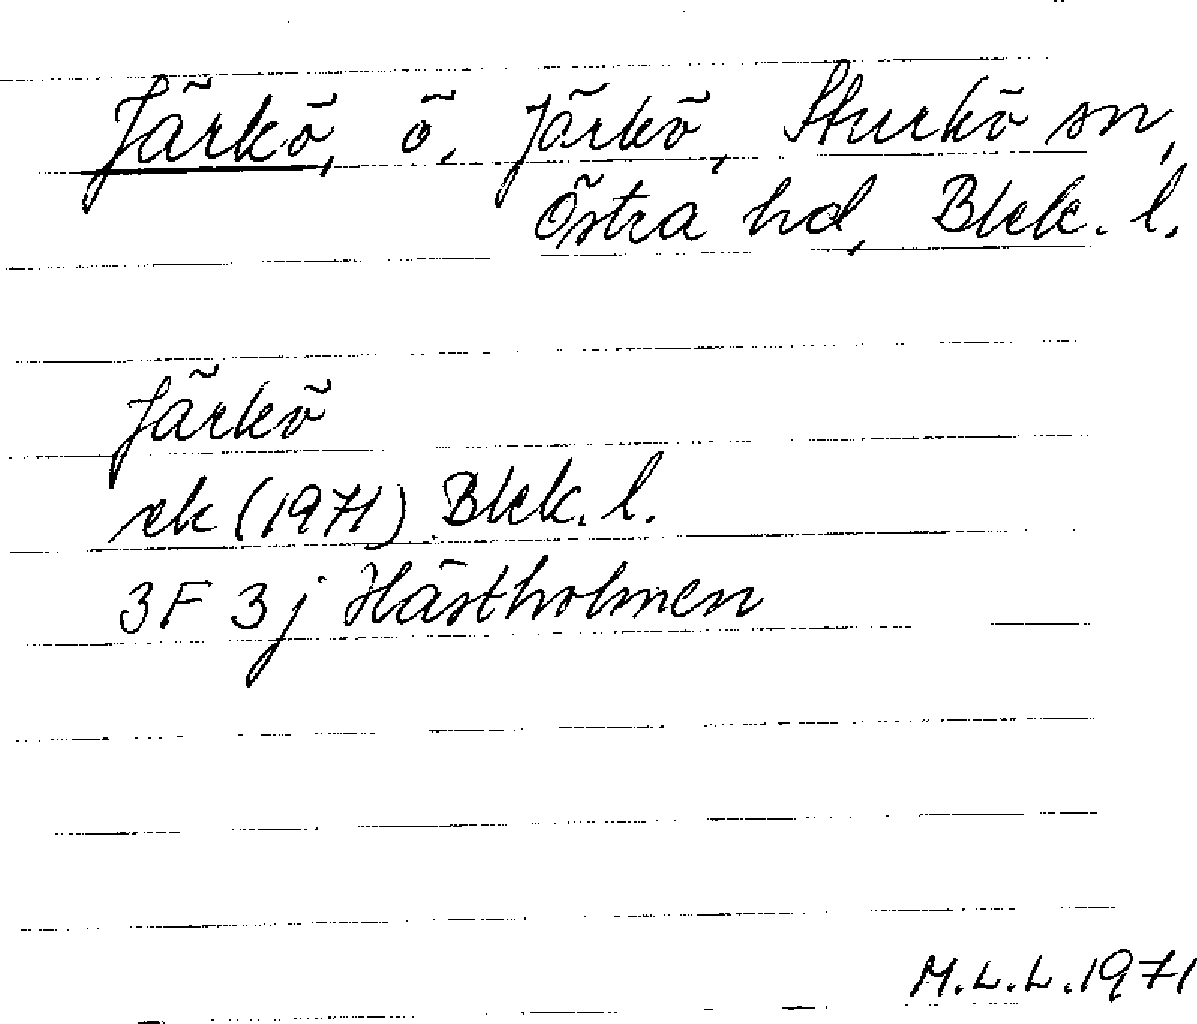 Järkö, ö, Järkö, Sturkö sn,
Östra hd, Blek. l.
Järkö
ek (1971) Blek. l.
3F 3j Hästholmen
M.L.L. 1971